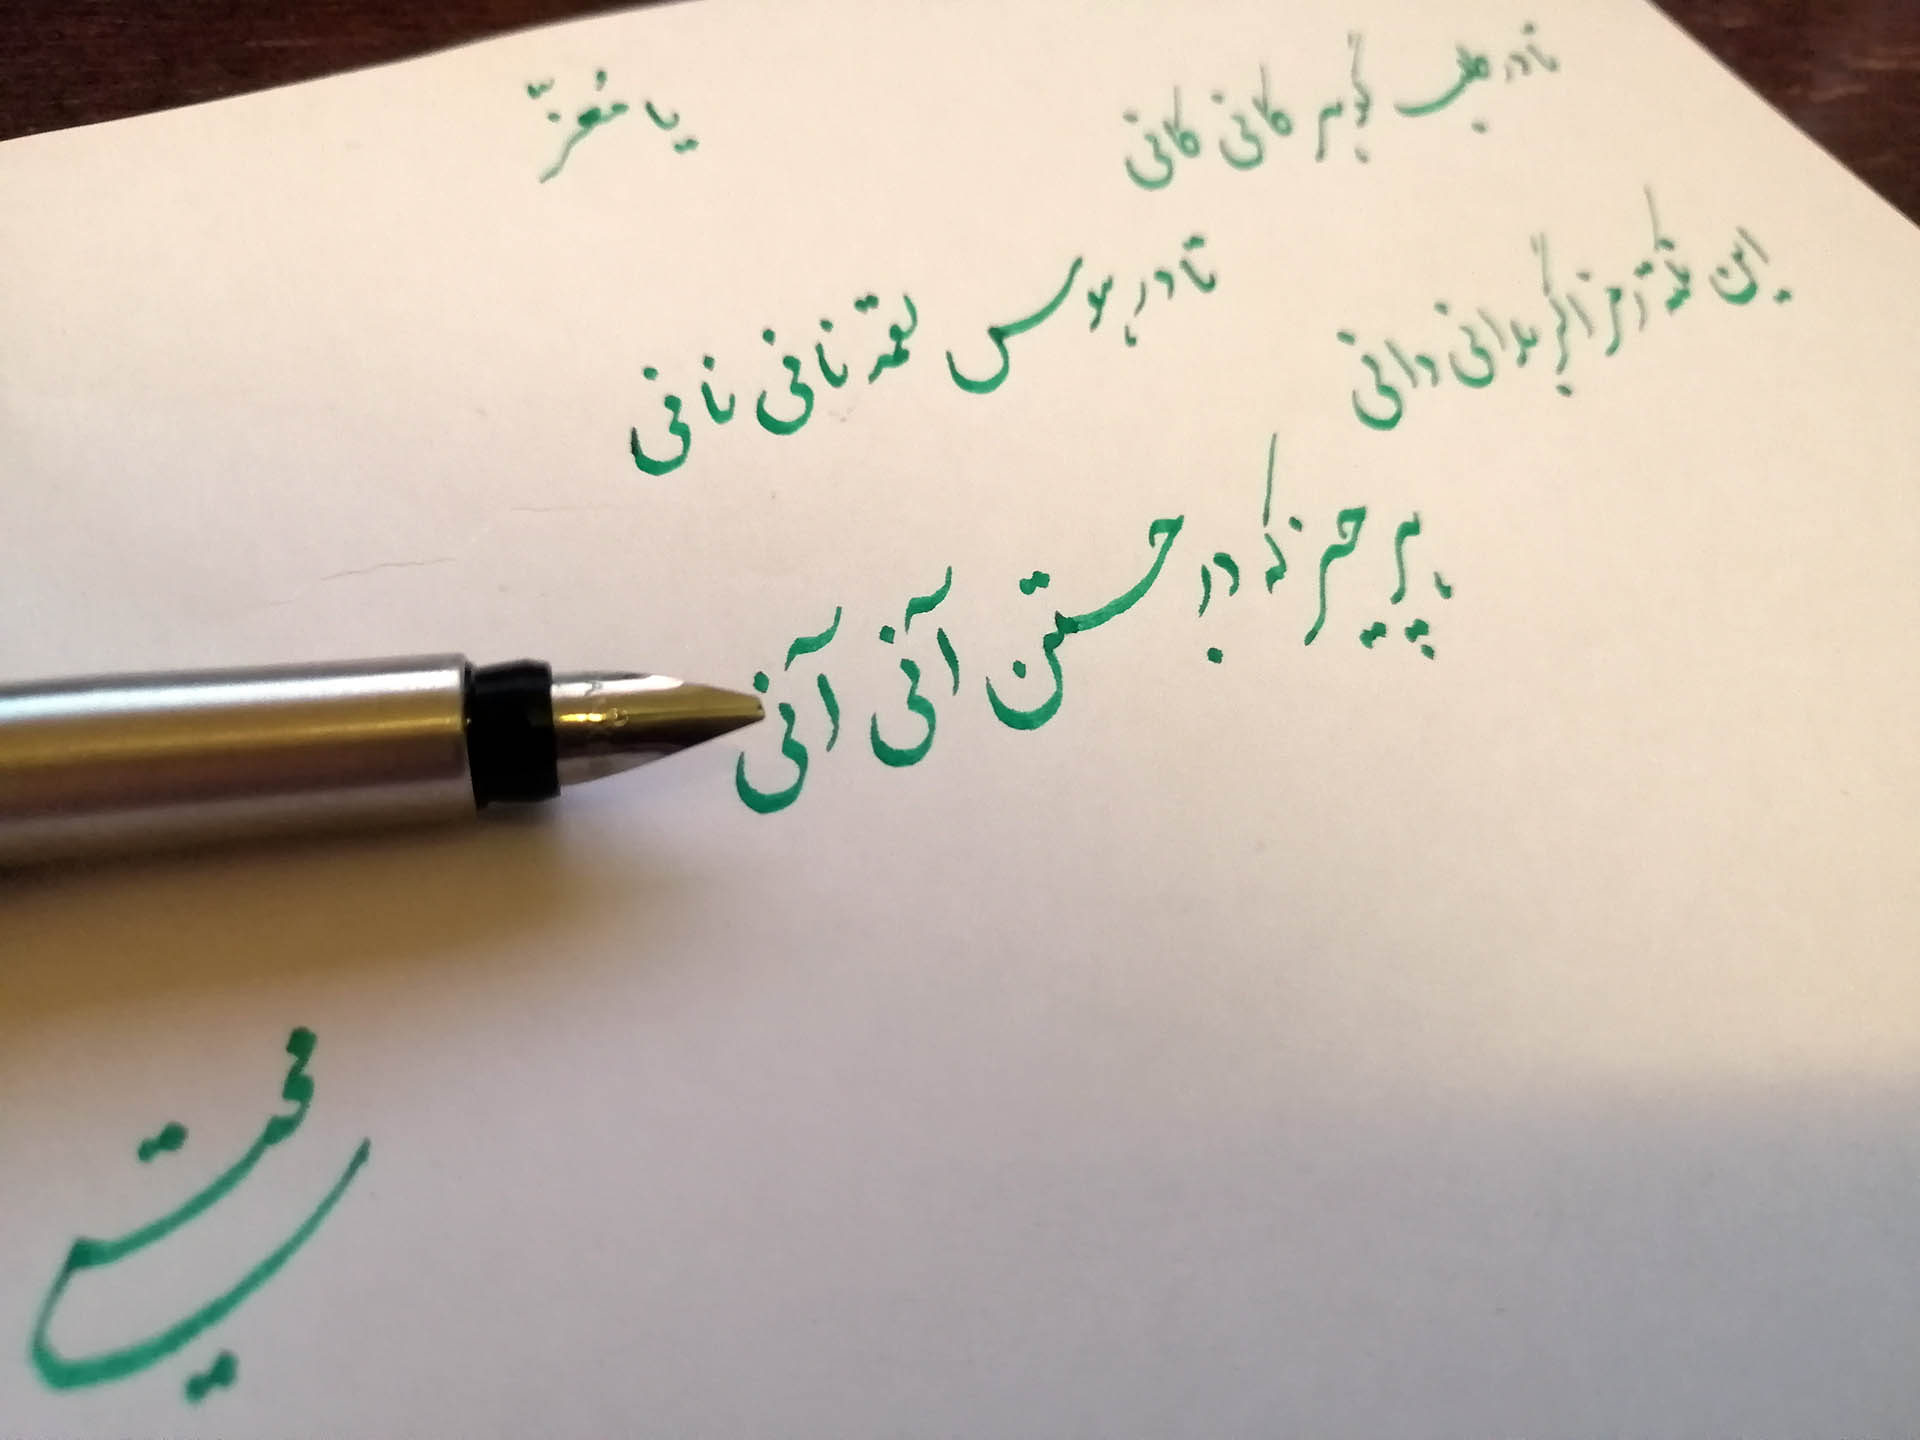 یا مُعزّ
تا در طلب گوهر کانی کانی
تا در هوس لقمهٔ نانی نانی
این نکتهٔ رمز اگر بدانی دانی
هر چیز که در جستن آنی آنی